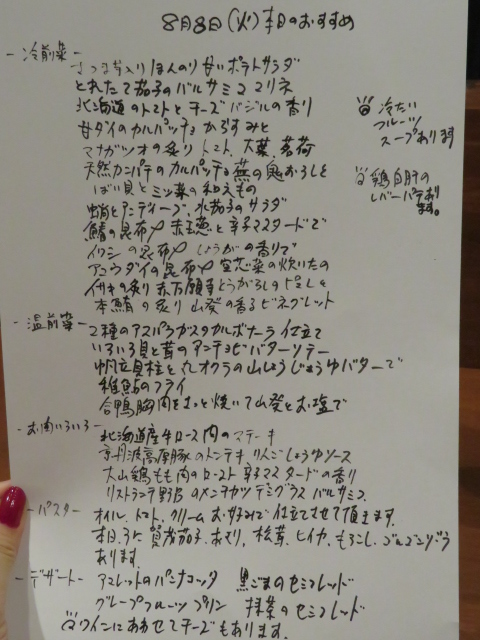 8月8日(火)本日のおすすめ
-冷前菜-
さつま芋入りほんのり甘いポテトサラダ
とれたて茄子のバルサミコマリネ
北海道のトマトとチーズ バジルの香り
甘ダイのカルパッチョ からすみと
マナガツオの炙り トマト、大葉、茗荷
天然カンパチのカルパッチョ 蕪の鬼おろしと
ばい貝とミツ葉の和えもの
蛸とアンディーブ、水茄子のサラダ
鰆の昆布〆 赤玉葱と辛子マスタードで
イワシの昆布〆 しょうがの香りで
アコウダイの昆布〆 空芯菜の炊いたの
イサキの炙り 赤万願寺とうがらしのピュレと
本鮪の炙り 山葵の香るビネグレット
冷たい
フルーツ
スープあります
鶏白肝の
レバーパテあり
ます。
-温前菜-
2種のアスパラガスのカルボナーラ仕立て
いろいろ貝と茸のアンチョビバターソテー
帆立貝柱と丸オクラの山しょうじょうゆバターで
稚鮎のフライ
合鴨胸肉をさっと焼いて山葵とお塩で
-お肉いろいろ-
北海道産牛ロース肉のステーキ
京丹波高原豚のトンテキ りんごしょうゆソース
大山鶏もも肉のロースト 辛子マスタードの香り
リストランテ野原のメンチカツ デミグラス バルサミコ
-パスタ-
オイル、トマト、クリーム お好みで仕立てさせて頂きます。
本日、他に賀茂茄子、あさり、松茸、ヒイカ、もろこし、ゴルゴンゾーラ
あります。
-デザート-
アマレットのパンナコッタ 黒ごまのセミフレッド
グレープフルーツプリン 抹茶のセミフレッド
ワインにあわせてチーズもあります。